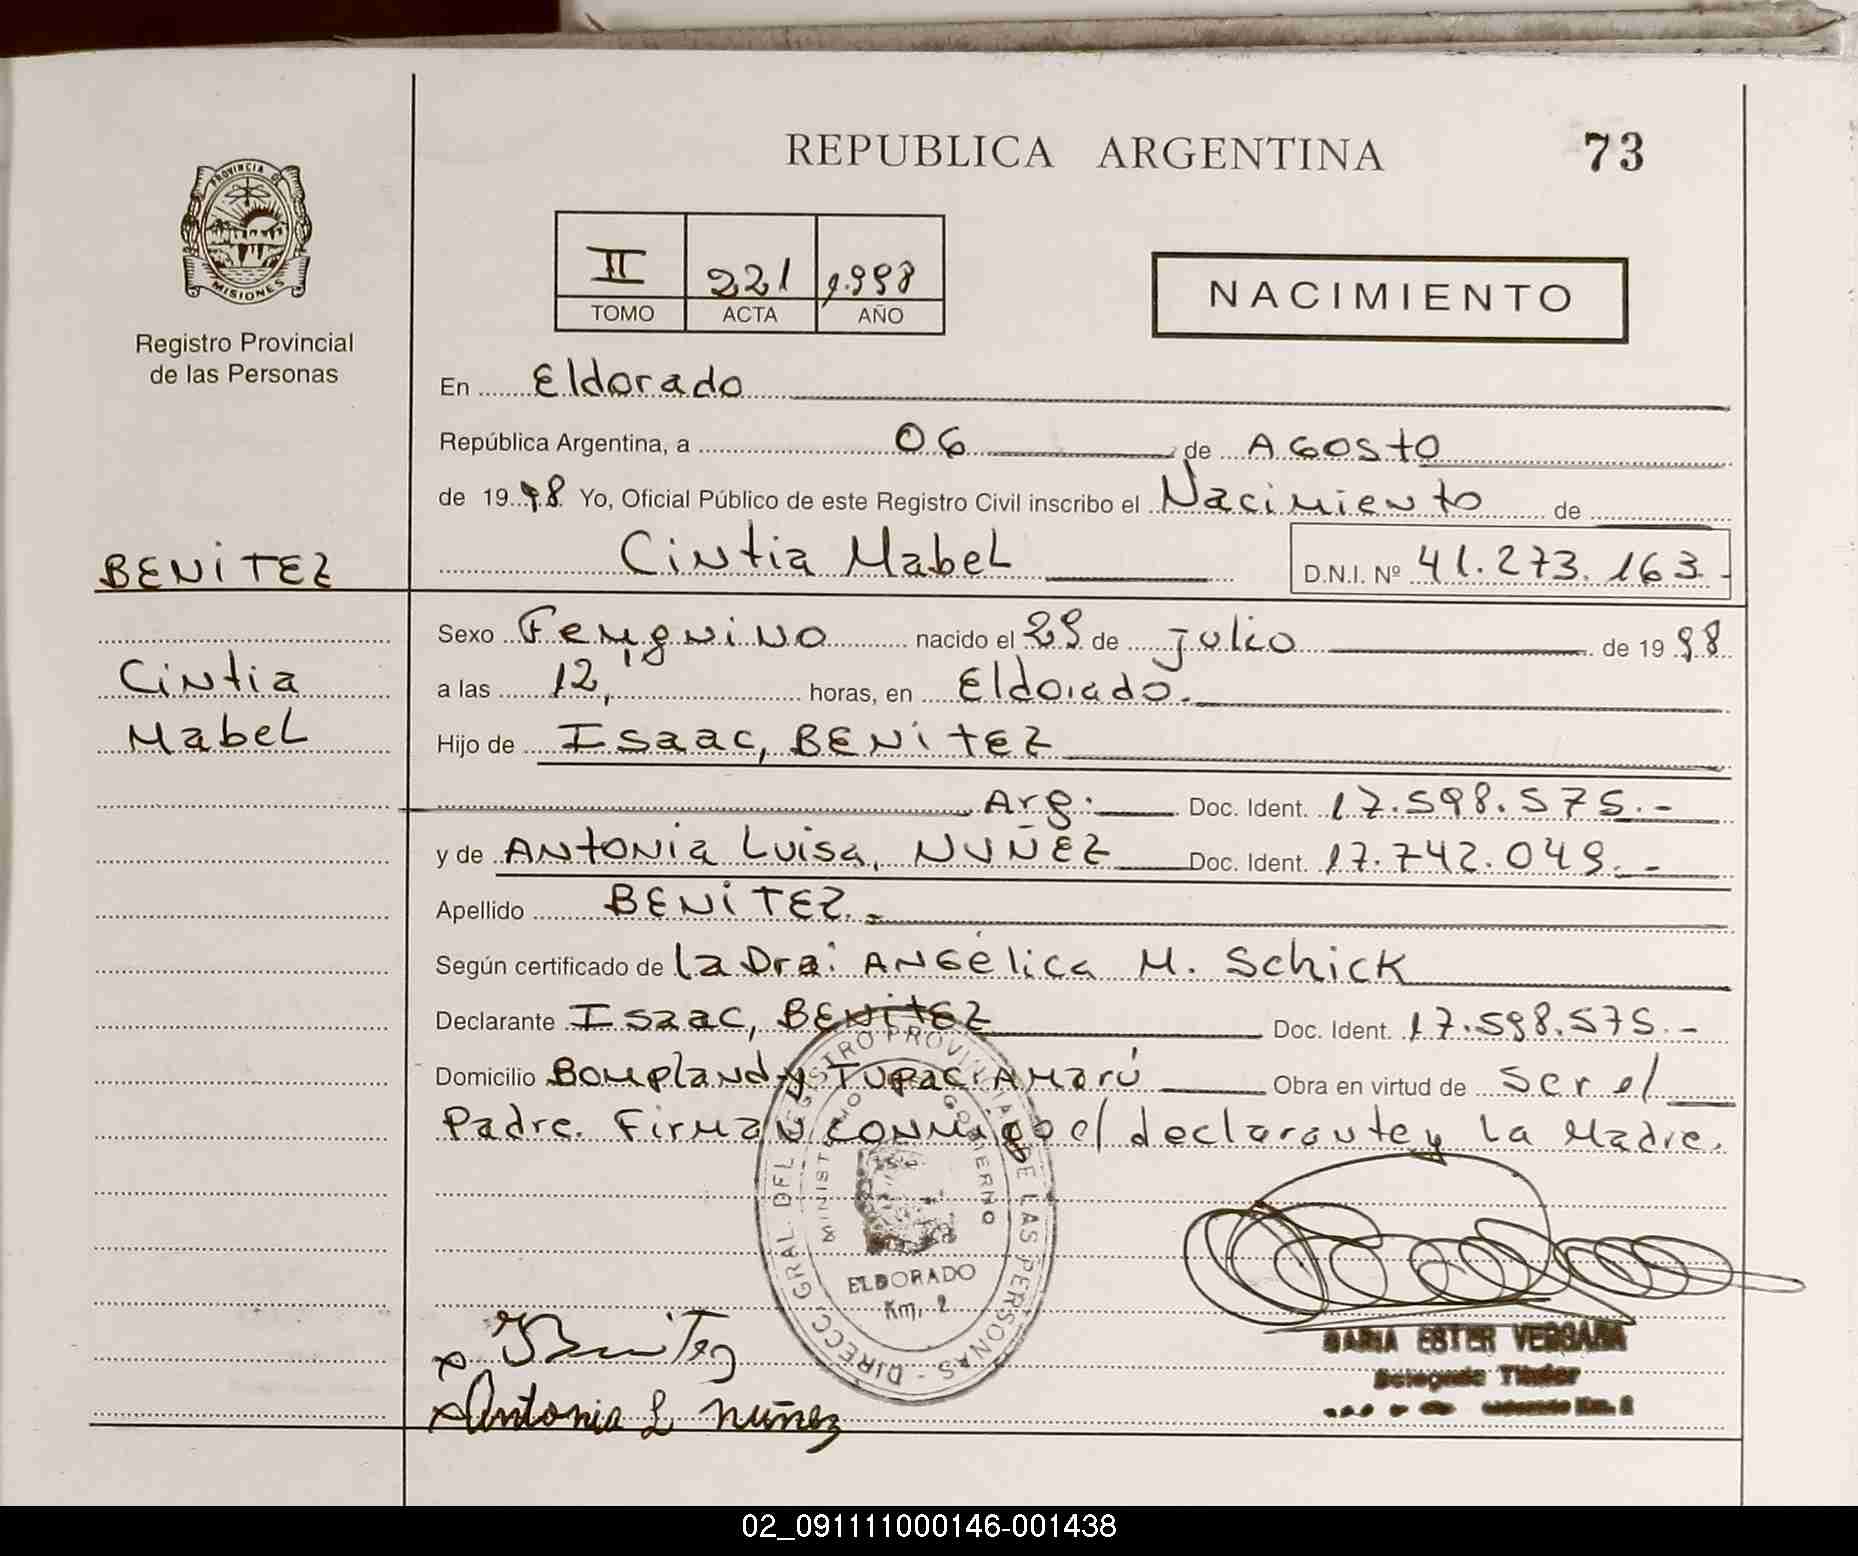 REPUBLICA ARGENTINA
73
PROVINCIA DE
MISIONES
Registro Provincial
de las Personas
II 221 1.998
TOMO ACTA AÑO
NACIMIENTO
En Eldorado
República Argentina, a 06 de AGOSTO
de 1998 Yo, Oficial Público de este Registro Civil inscribo el Nacimiento de
Cintia Mabel D.N.I. Nº 41.273.163.-
BENITEZ
Cintia
Mabel
Sexo Femenino nacido el 29 de julio de 1998
a las 12, horas, en Eldorado.
Hijo de Isaac, BENITEZ
Arg. Doc. Ident. 17.598.575.-
y de ANTONIA LUISA, NUÑEZ Doc. Ident. 17.742.049.-
Apellido BENITEZ.-
Según certificado de la Dra: ANGÉLICA M. Schick
Declarante Isaac, BENITEZ Doc. Ident. 17.598.575.-
Domicilio Bompland y TUPAC AMARÚ Obra en virtud de ser el
Padre. Firman conmigo el declarante y la Madre.
DIRECC. GRAL. DEL REGISTRO PROVINCIAL DE LAS PERSONAS
MINISTERIO GOBIERNO
ELDORADO
Km. 2
Benitez
Antonia L Nuñez
MARIA ESTER VERGARA
Delegada Titular
Km. 2
02_091111000146-001438